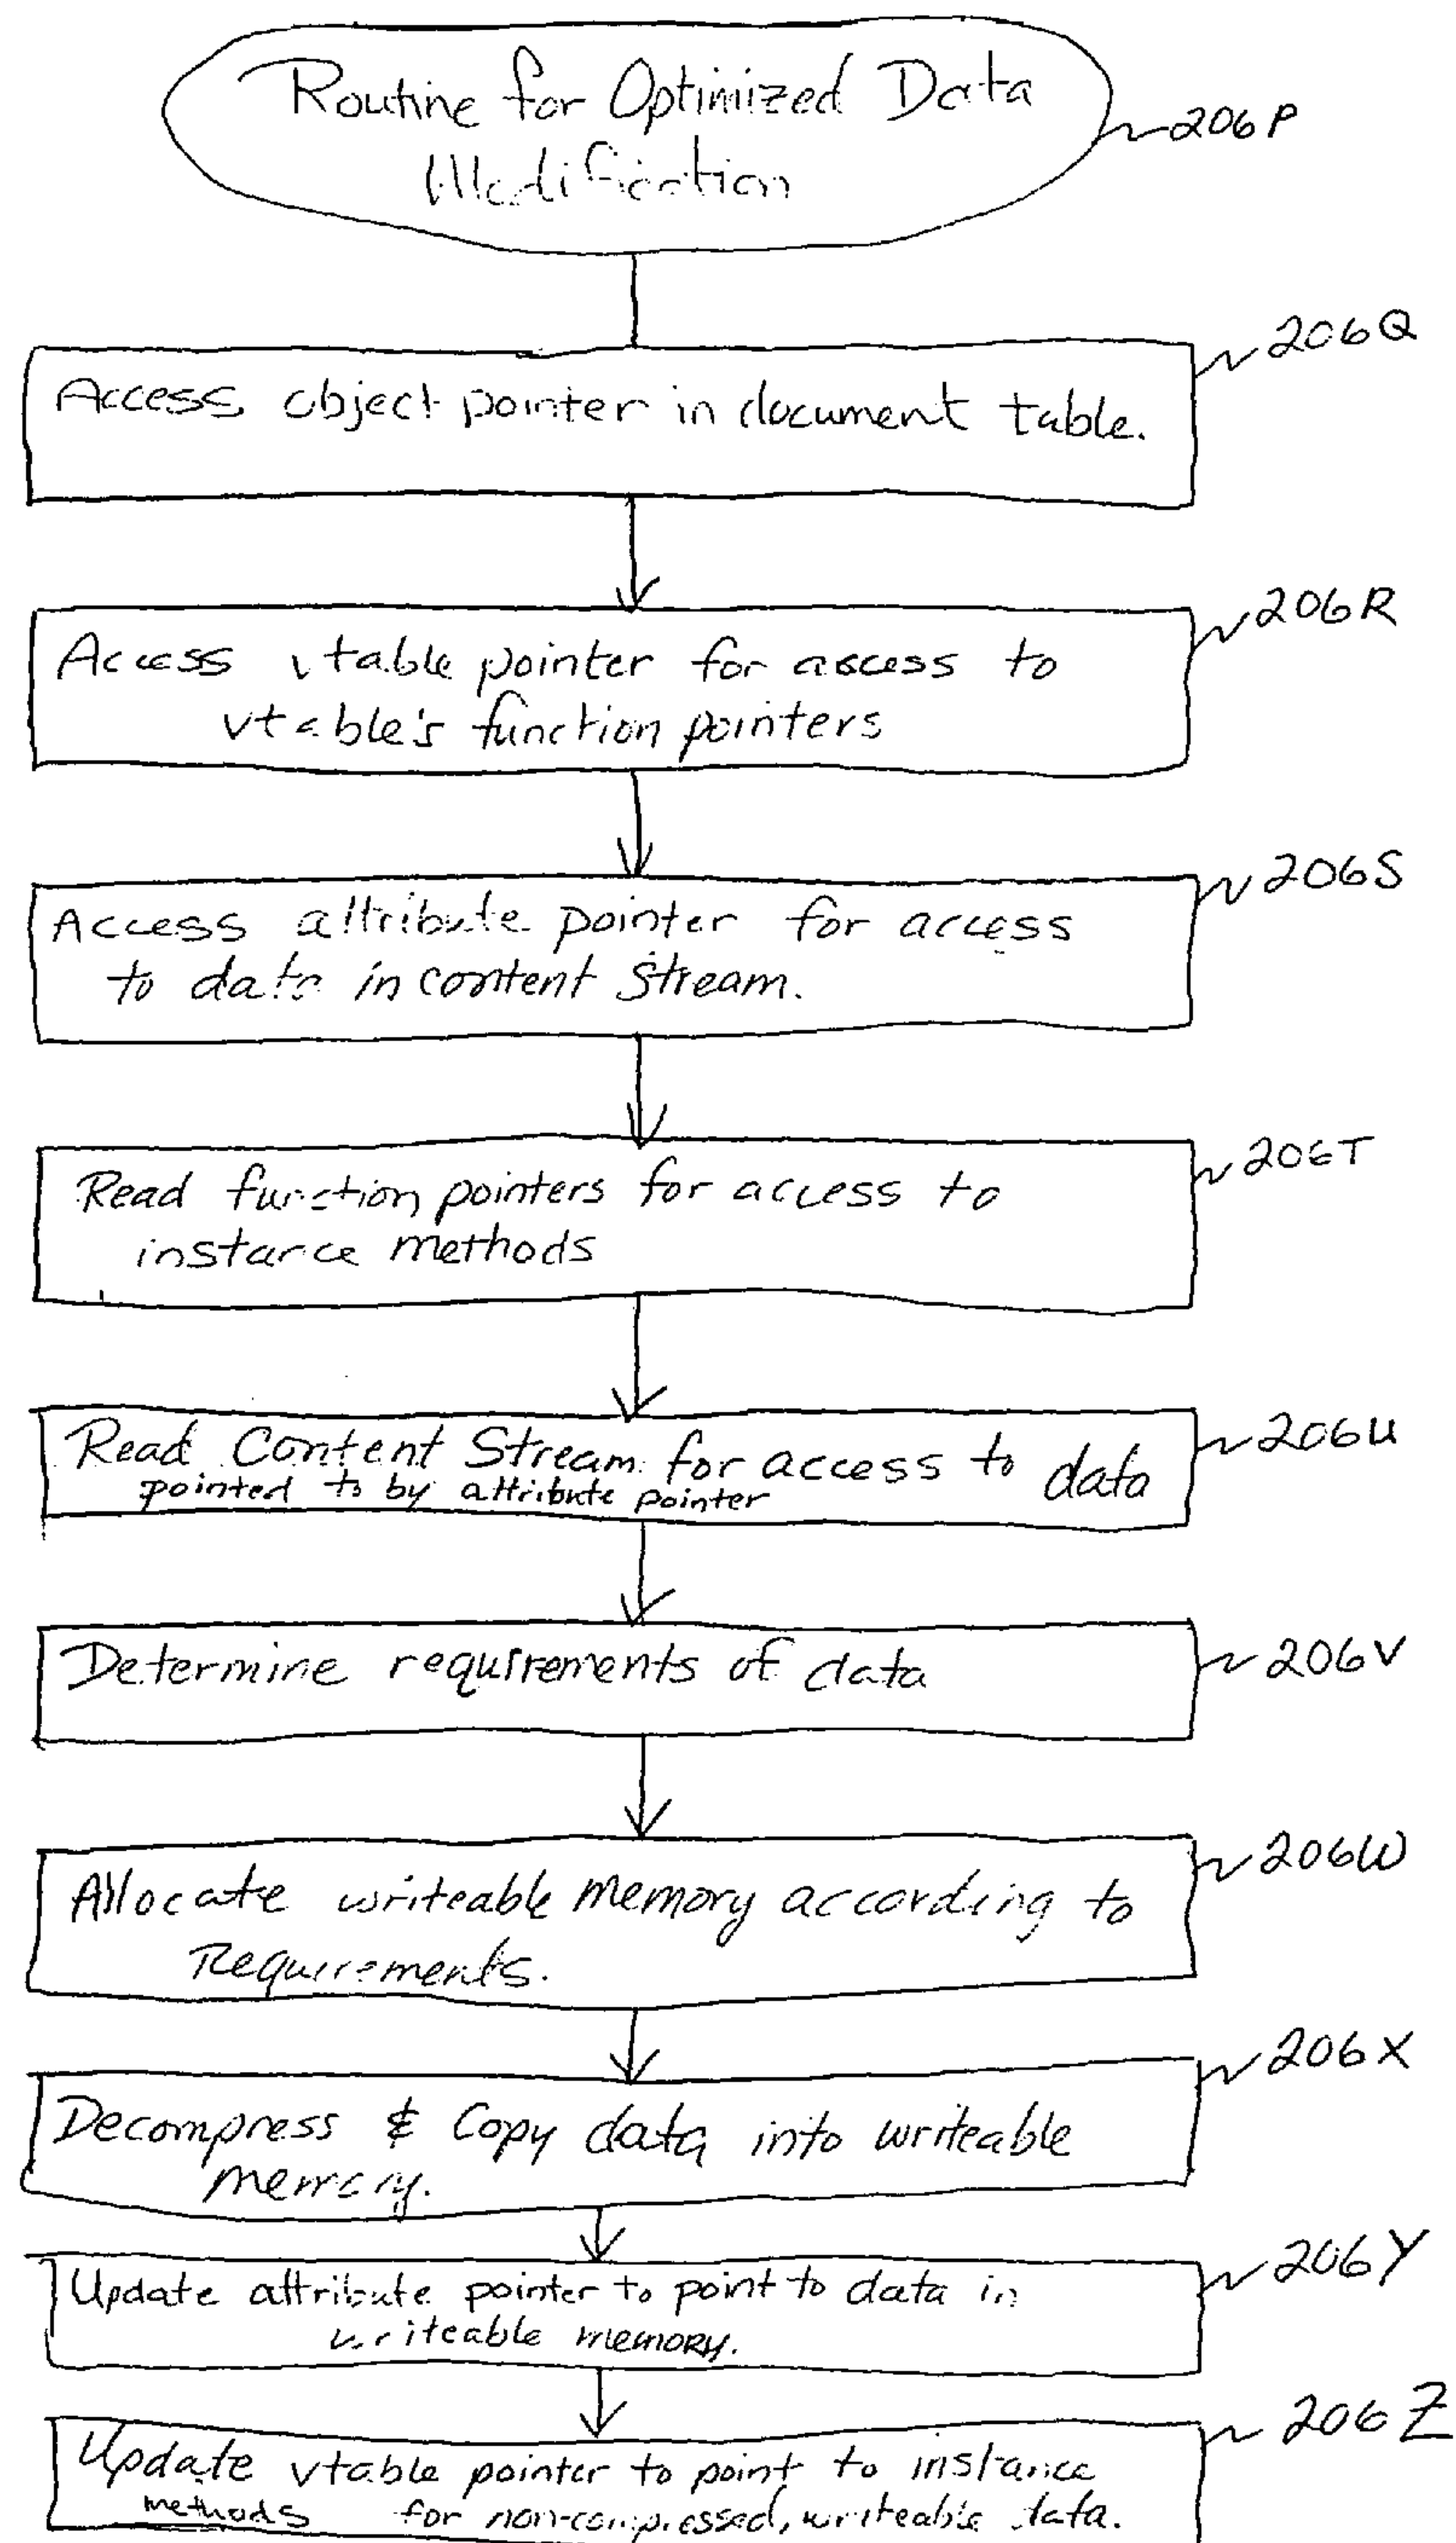 Routine for Optimized Data
Modification
206P
206Q
Access object pointer in document table.
206R
Access vtable pointer for access to
vtable's function pointers
206S
Access attribute pointer for access
to data in content stream.
206T
Read function pointers for access to
instance methods
206U
Read Content Stream for access to data
pointed to by attribute pointer
206V
Determine requirements of data
206W
Allocate writeable memory according to
Requirements.
206X
Decompress & Copy data into writeable
memory.
206Y
Update attribute pointer to point to data in
writeable memory.
206Z
Update vtable pointer to point to instance
methods for non-compressed, writeable data.